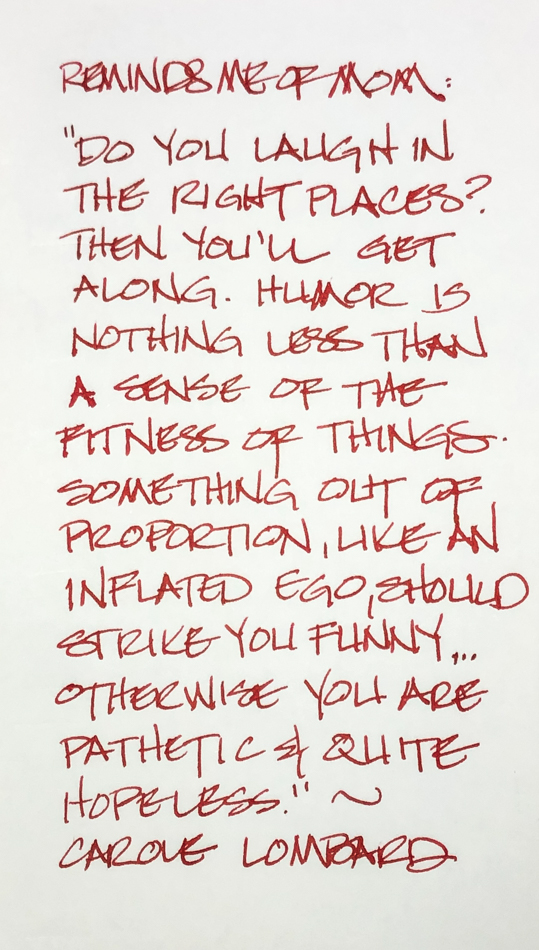 REMINDS ME OF MOM:
"DO YOU LAUGH IN
THE RIGHT PLACES?
THEN YOU'LL GET
ALONG. HUMOR IS
NOTHING LESS THAN
A SENSE OF THE
FITNESS OF THINGS.
SOMETHING OUT OF
PROPORTION, LIKE AN
INFLATED EGO, SHOULD
STRIKE YOU FUNNY...
OTHERWISE YOU ARE
PATHETIC & QUITE
HOPELESS." ~
CAROLE LOMBARD